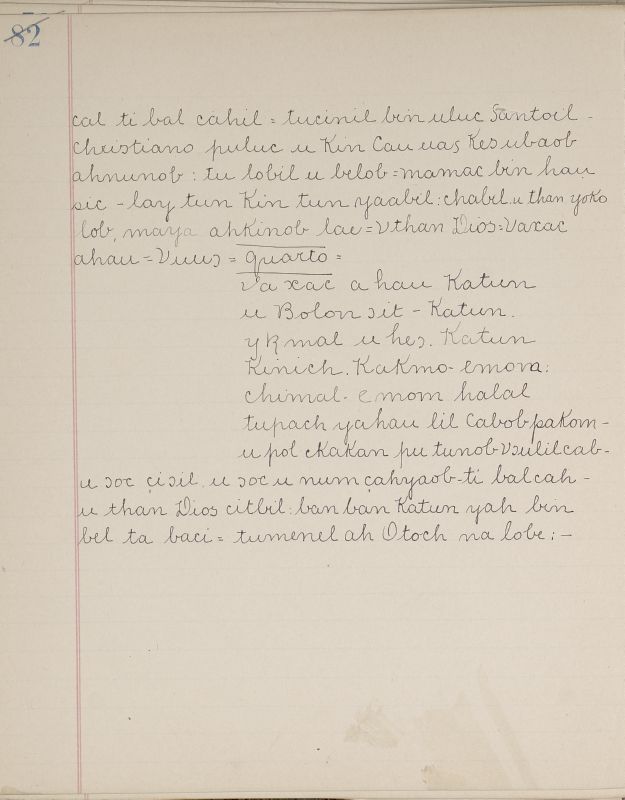 82
cal ti bal cahil = tucinil bin uluc Santoil -
christiano puluc u Kin Cau uaɔ Kes ubaob
ahnunob : tu lobil u belob = mamac bin hau
sic - lay tun Kin tun yaabil : chabil u than yoko
lob, maya ahKinob lae = Vthan Dios = Vaxac
ahau = Vuuɔ = quarto =
Vaxac ahau Katun
u Bolon ɔit - Katun.
u heɔ. Katun
Kinich. KaKmo - emom :
chimal - emom halal
tupach yahau lil Cabob paKom -
u pol chaKan pu tunob Vɔulilcab -
u ɔoc çiɔil. u ɔoc u num çahyaob - ti balcah -
u than Dios citbil : ban ban Katun yah bin
bel ta baci = tumenel ah Otoch na lobe : -